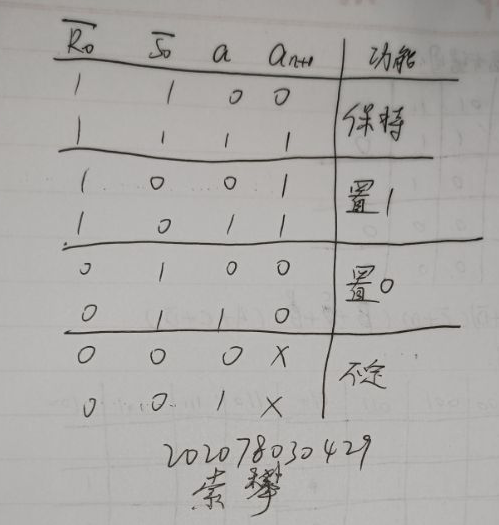 R̅₀ S̅₀ a aₙ₊₁ 功能
1 1 0 0
保持
1 1 1 1
1 0 0 1
置1
1 0 1 1
0 1 0 0
置0
0 1 1 0
0 0 0 X
不定
0 0 1 X
202078030429
索攀